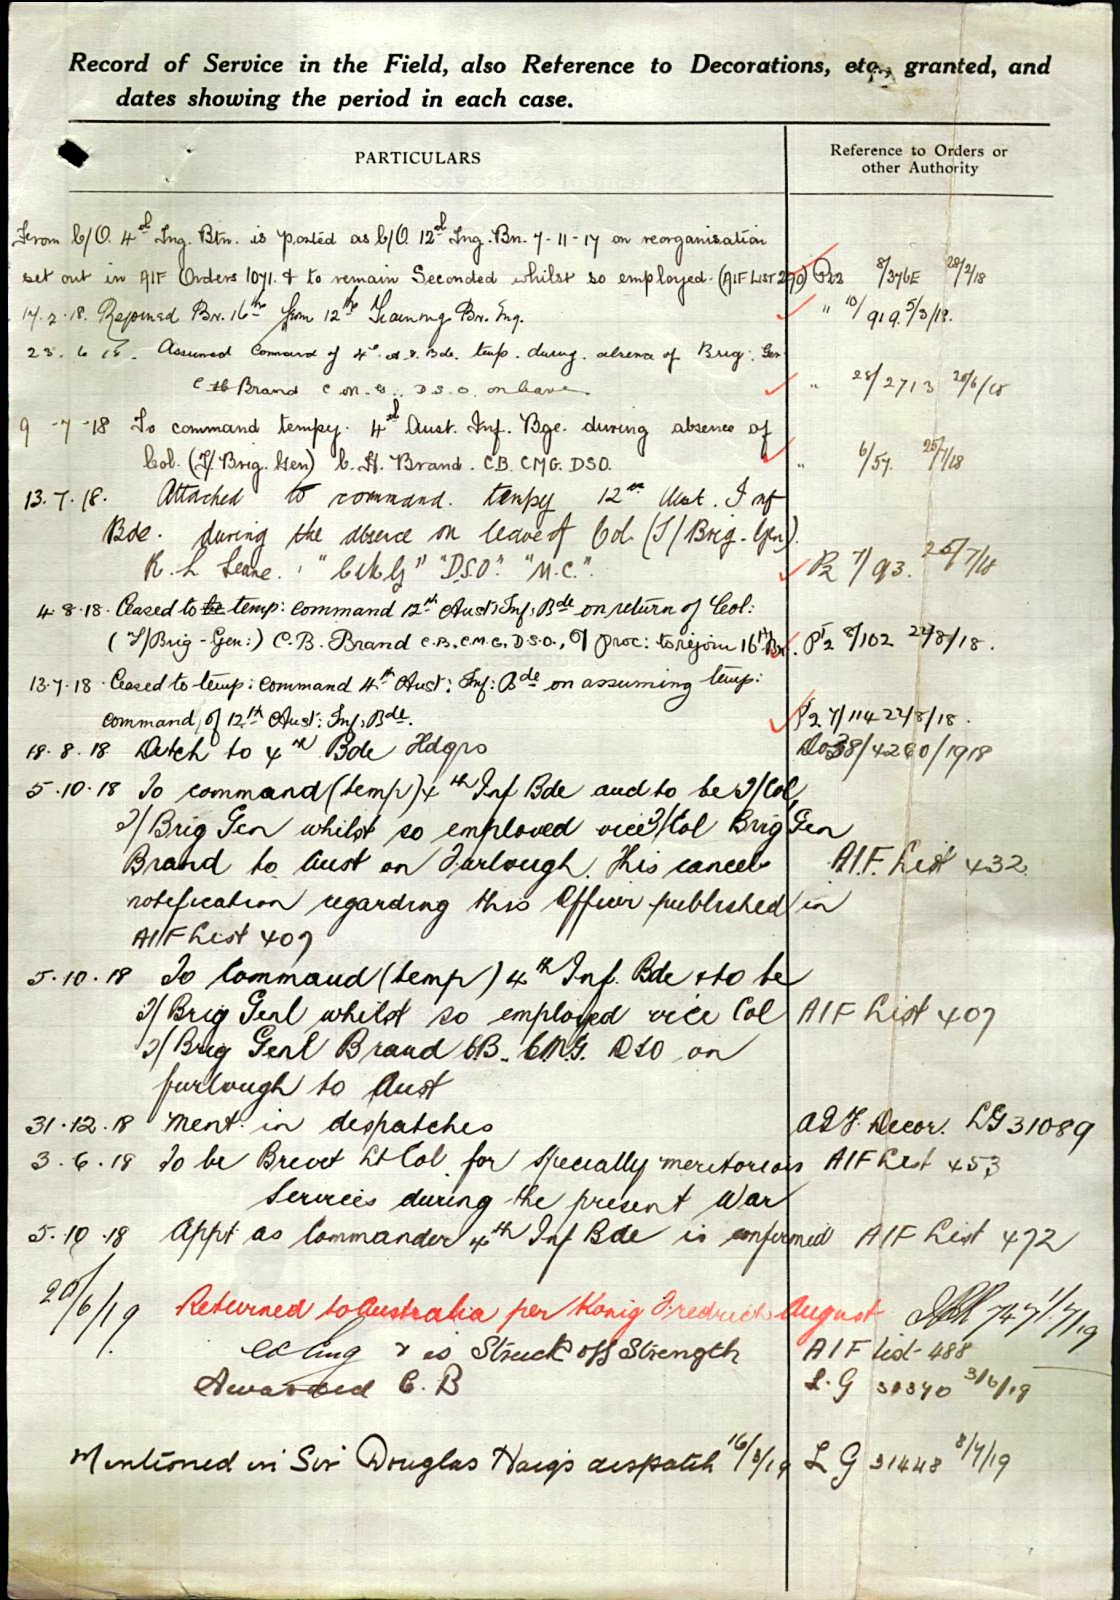 Record of Service in the Field, also Reference to Decorations, etc., granted, and
dates showing the period in each case.
PARTICULARS
Reference to Orders or
other Authority
From C/O. 4th Trg. Btn. is posted as C/O 12th Trg. Bn. 7-11-17 on reorganisation
set out in AIF Orders 1071. & to remain Seconded whilst so employed. (AIF LIST 270) 8/376E 28/2/18
14.2.18. Rejoined Bn. 16th from 12th Training Bn. Eng. " 10/919. 5/3/18.
23.6.18. Assumed Command of 4th A.I. Bde. temp. during absence of Brig: Gen
C H Brand C.M.G. D.S.O. on leave " 28/2713 20/6/18
9-7-18 To command tempy. 4th Aust. Inf. Bge. during absence of
Col. (T/Brig. Gen) C. H. Brand. C.B. CMG. DSO. " 6/57. 25/7/18
13.7.18. Attached to command. tempy 12th Aust. Inf
Bde. during the absence on leave of Col. (T/Brig-Gen).
R. L. Leane. "CMG" "D.S.O." "M.C.". P2 7/93. 25/7/18
4.8.18. Ceased to be temp: command 12th Aust: Inf: Bde on return of Col:
(T/Brig-Gen:) C.B. Brand C.B. C.M.G. D.S.O., & proc: to rejoin 16th Bn. P2 8/102 22/8/18.
13.7.18. Ceased to temp: command 4th Aust: Inf: Bde on assuming temp:
command, of 12th Aust: Inf: Bde. P2 7/114 22/8/18.
18.8.18 Detch to 4th Bde Hdqrs 38/4260/1918
5.10.18 To command (temp) 4th Inf Bde and to be T/Col
T/Brig Gen whilst so employed vice T/Col Brig Gen
Brand to Aust on Furlough. This cancels A.I.F. List 432
notification regarding this Officer published in
AIF List 407
5.10.18 To Command (temp) 4th Inf. Bde & to be
T/Brig Genl whilst so employed vice Col AIF List 407
T/Brig Genl Brand CB. CMG. DSO on
furlough to Aust
31.12.18 Ment. in despatches A.I.F. Decor. LG 31089
3.6.18 To be Brevet Lt Col. for specially meritorious AIF List 453
Services during the present War
5.10.18 Appt as Commander 4th Inf Bde is confirmed AIF List 472
20/6/19 Returned to Australia per Konig Fredrich August 747 1/7/19
& is Struck off Strength AIF list 488
Awarded C.B L.G 31370 3/6/19
Mentioned in Sir Douglas Haig's despatch 16/3/19 L G 31448 8/7/19